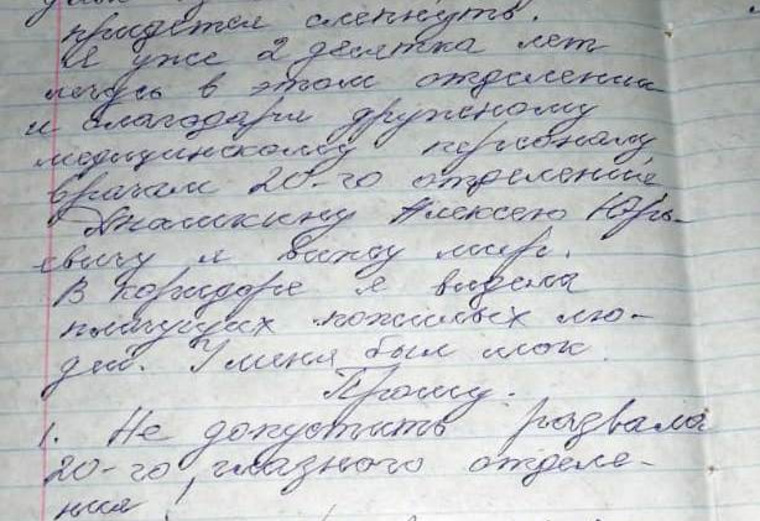 придется слепнуть.
Я уже 2 десятка лет
лечусь в этом отделении
и благодаря дружному
медицинскому персоналу
врачам 20-го отделения
Алексею Юрь-
евичу я вижу мир.
В коридоре я видела
плачущих пожилых лю-
дей. У меня был шок.
Прошу:
1. Не допустить развала
20-го глазного отделе-
ния!